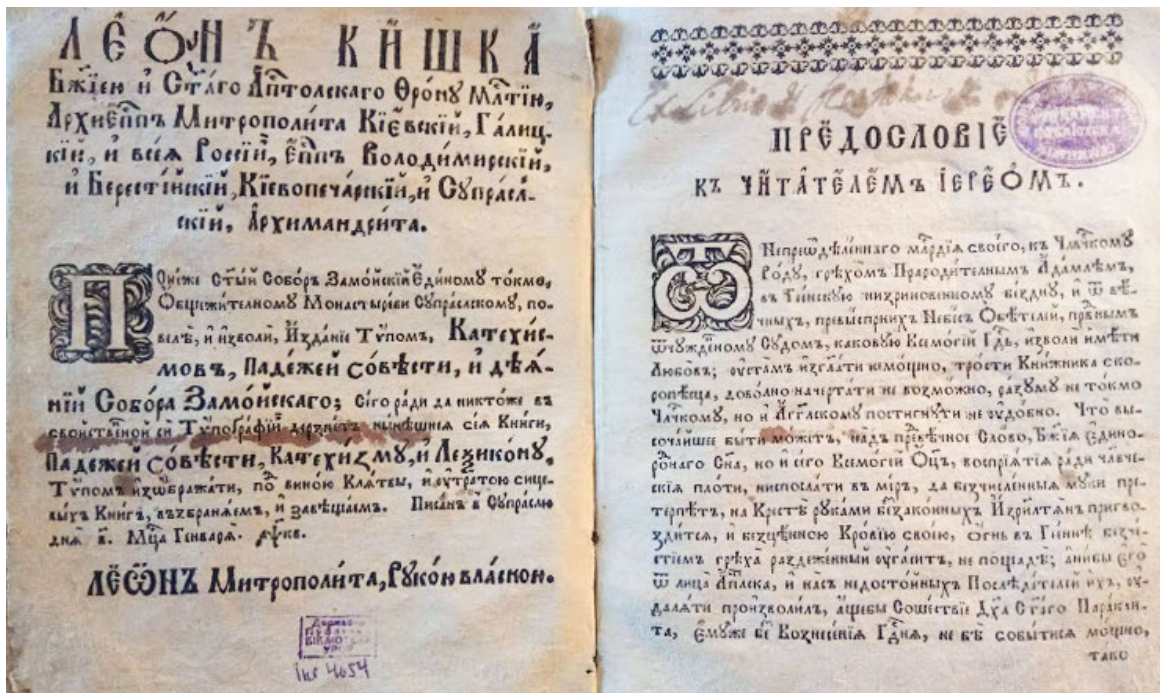 ЛЕѺНЪ КИШКА
Бж҃їею и Ст҃аго Ап҃толскаго Ѳрону Мл҃тїю,
Архїеп҃пъ Митрополита Кїевскїй, Галиц-
кїй, и всея Россїи, Еп҃пъ Володимирскїй,
и Берестїйскїй, Кїевопечарскїй, и Супрасл-
скїй, Архимандрита.
Понеже Ст҃ый Соборъ Замойскїй Единому токмо,
Общежителному Монастыреви Супраслскому, по-
велѣ, и изволи, Изданїе Тѵпомъ, Катехис-
мовъ, Падежей совѣсти, и дѣя-
нїй Собора Замойскаго; Сего ради да никтоже въ
свойственой си Тѵпографїи дерзнетъ нынѣшнея сея Книги,
Падежей совѣсти, Катехизму, и Леѯикону,
Тѵпомъ изѡбражати, по виною Клятвы, и утратою сице-
выхъ Книгъ, възбраняемъ, и завѣщаемъ. Писанъ в Супраслю
дня в҃. Мц҃а Генваря. аѱкв.
ЛЕѠНЪ Митрополита, Рукою власною.
Державна
Публична
Бібліотека
УРСР
Інк 4654
Ex Libris
ПРЕДОСЛОВІЕ
КЪ ЧИТАТЕЛЕМЪ ІЕРЕѺМЪ.
Ѿ Непреѡдѣленнаго мл҃рдїя своего, къ Чл҃вчкому
Роду, грѣхомъ Прародителнымъ Адамлемъ,
въ Геенскую низриновенному бездну, и ѿ вѣ-
чныхъ, превыспрнихъ Небесъ Обителей, првнымъ
ѿчужденому Судомъ, каковую Всемогїй Гд҃ь, изволи имѣти
Любовъ; оустамъ изглати немощно, трости Книжника ско-
рописца, доволно начертати не возможно, разуму не токмо
Чл҃чкому, но и Агг҃лскому постигнути не оудобно. Что вы-
сочайшее быти можетъ, надъ превѣчное Слово, Бж҃їя Едино-
роднаго Сн҃а, но и сего Всемогїй Оц҃ъ, воспрїятїя ради чл҃вче-
скїя плоти, ниспослати въ миръ, да безчисленныя муки пре-
терпетъ, на Крестѣ руками беззаконныхъ Изрилтянъ пригво-
здится, и безцѣнною Кровїю своею, огнь въ Гееннѣ безче-
стїемъ грѣха разdеженный оугаситъ, не пощадѣ; анибы его
ѿ лица Ап҃лска, и насъ недостойныхъ Послѣдателей ихъ, оу-
даляти произволилъ, ащебы Сошествїе Дх҃а Ст҃аго Паракли-
та, Емуже без Вознесенїя Гд҃ня, не бѣ событися мощно,
тако